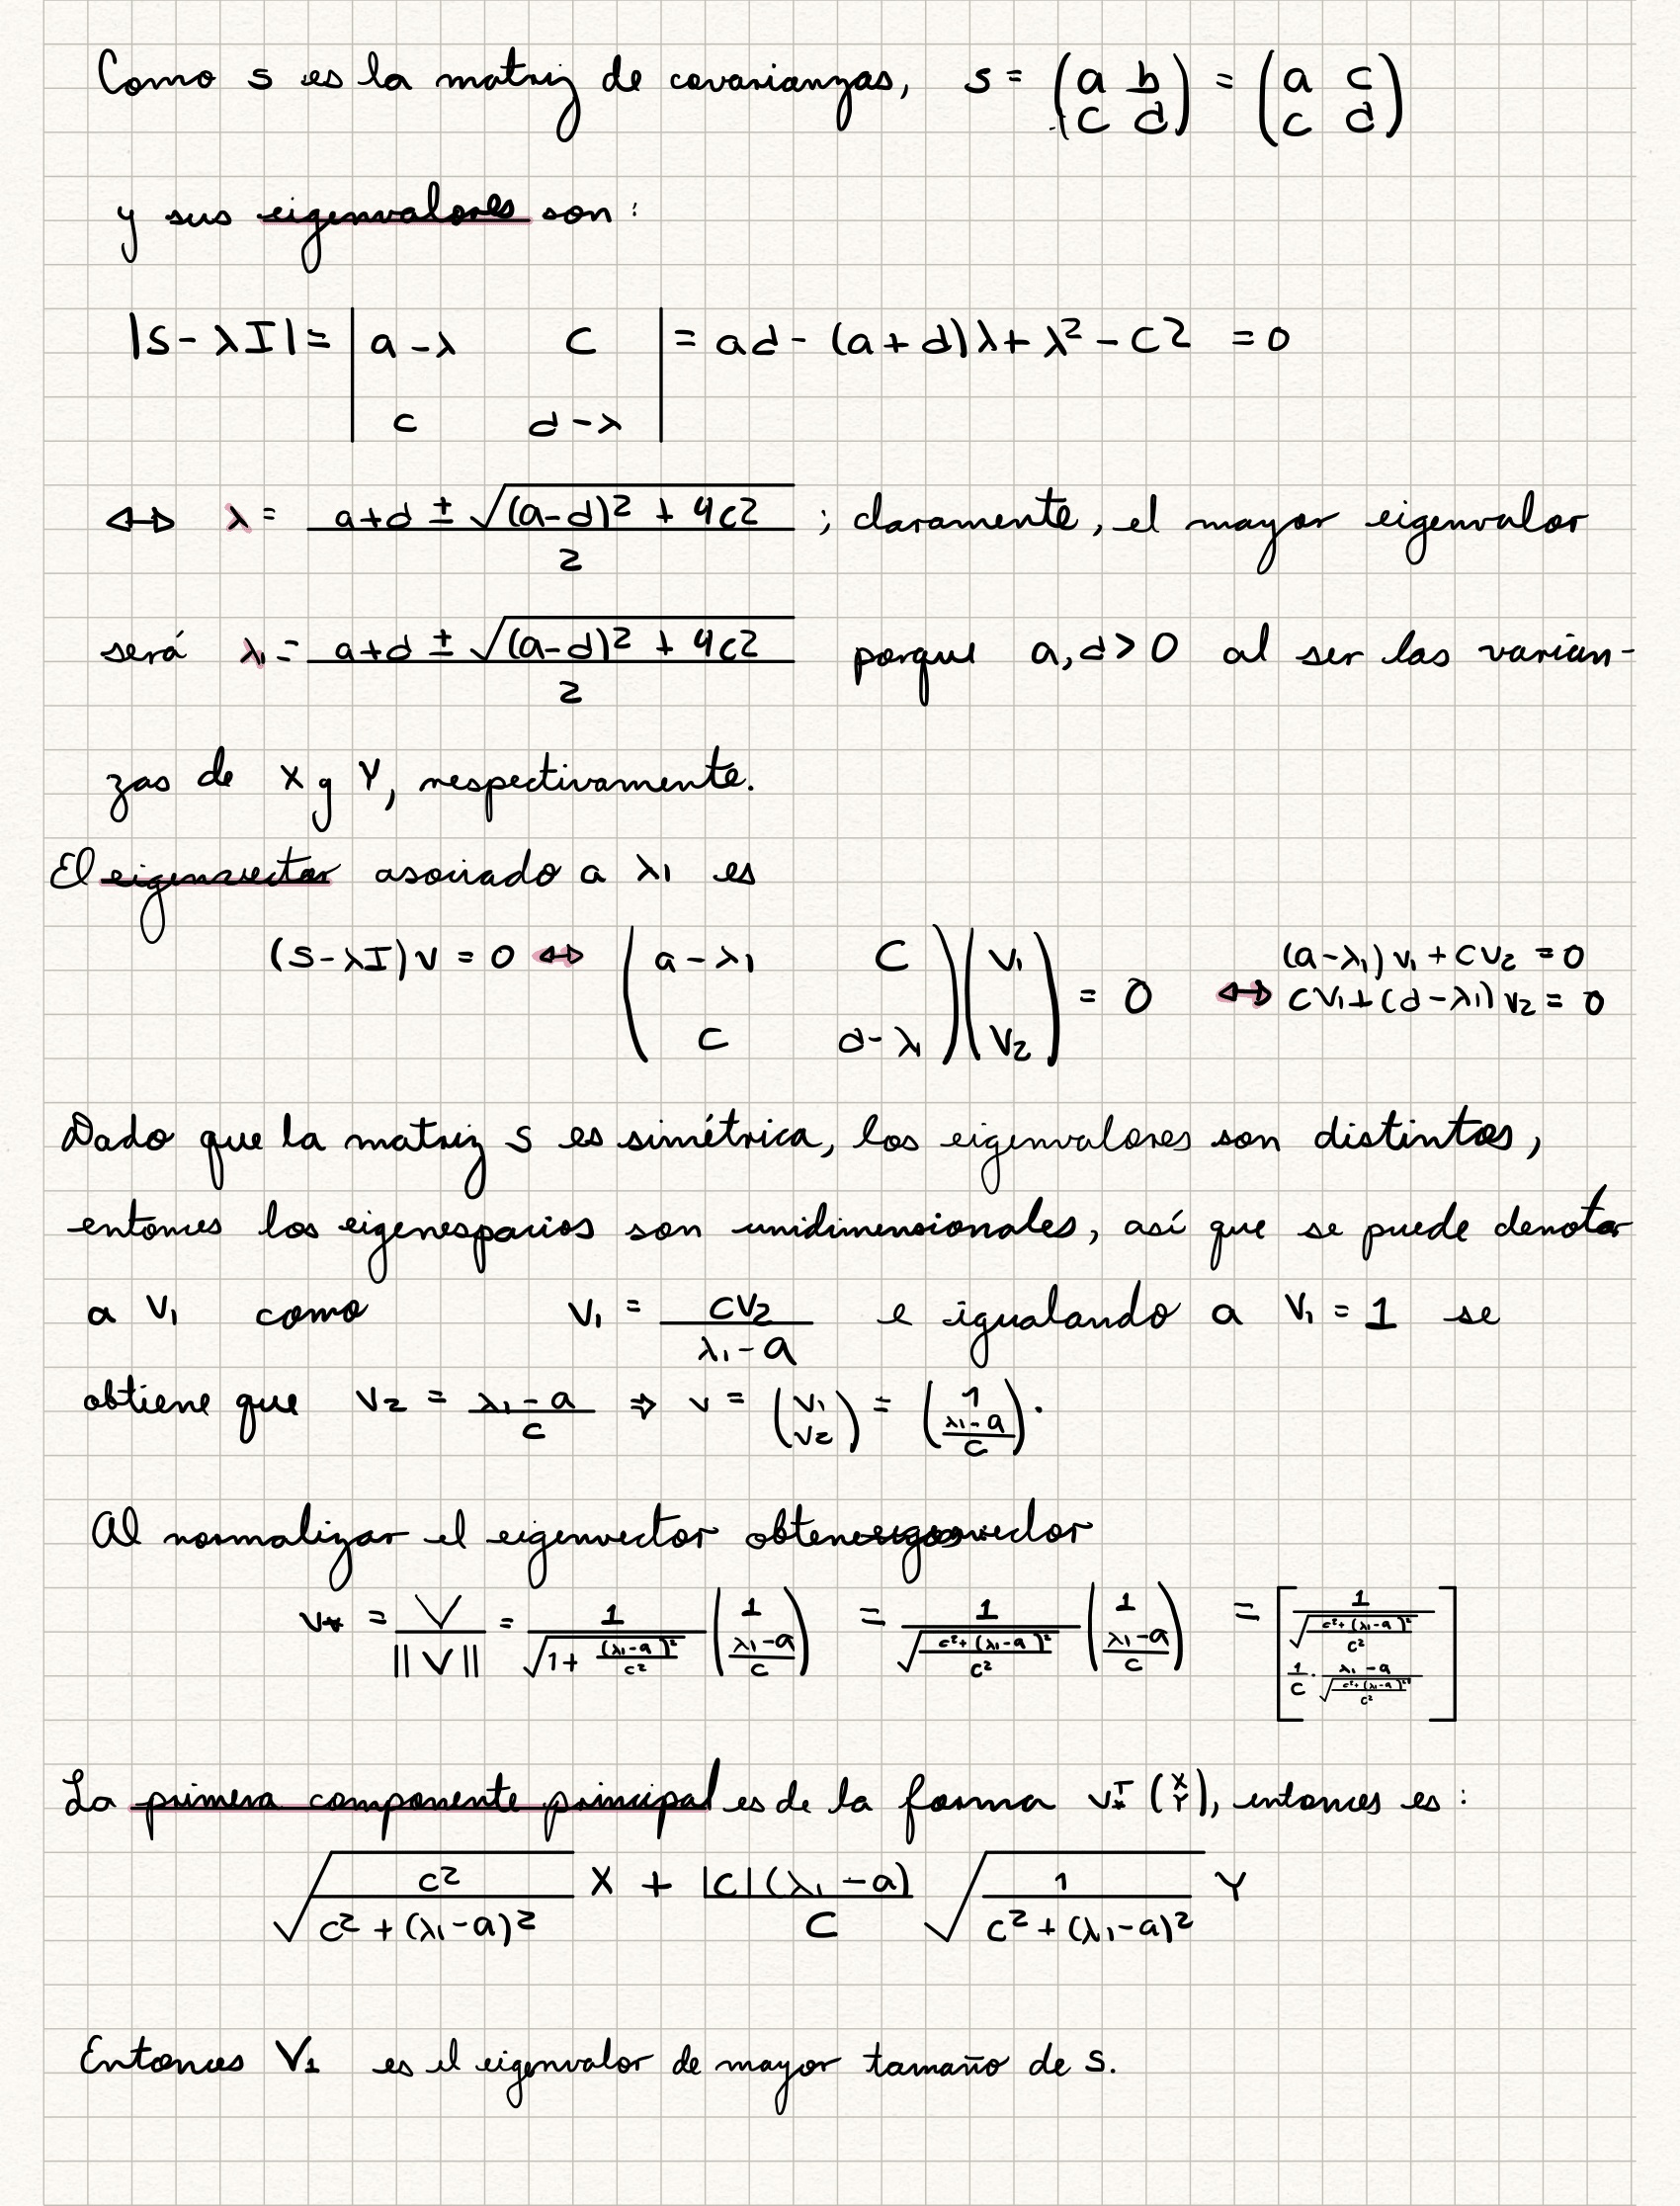 Como S es la matriz de covarianzas, S = (a b; c d) = (a c; c d)
y sus eigenvalores son:
|S - λI| = |a-λ c; c d-λ| = ad - (a+d)λ + λ² - c2 = 0
⇔ λ = (a+d ± √((a-d)² + 4c2)) / 2 ; claramente, el mayor eigenvalor
será λ₁ = (a+d ± √((a-d)² + 4c2)) / 2 porque a, d > 0 al ser las varian-
zas de X y Y, respectivamente.
El eigenvector asociado a λ₁ es
(S-λI)v = 0 ⇔ (a-λ₁ c; c d-λ₁)(v₁; v₂) = 0 ⇔ (a-λ₁)v₁ + cv₂ = 0
cv₁ + (d-λ₁)v₂ = 0
Dado que la matriz S es simétrica, los eigenvalores son distintos,
entonces los eigenespacios son unidimensionales, así que se puede denotar
a v₁ como v₁ = cv₂ / (λ₁-a) e igualando a v₁ = 1 se
obtiene que v₂ = (λ₁-a)/c ⇒ v = (v₁; v₂) = (1; (λ₁-a)/c).
Al normalizar el eigenvector
v* = V/||V|| = 1/√(1 + (λ₁-a)²/c²) (1; (λ₁-a)/c) = 1/√((c²+(λ₁-a)²)/c²) (1; (λ₁-a)/c) = [1/√((c²+(λ₁-a)²)/c²); 1/c · (λ₁-a)/√((c²+(λ₁-a)²)/c²)]
La primera componente principal es de la forma v*ᵀ (X; Y), entonces es:
√(c²/(c²+(λ₁-a)²)) X + |c|(λ₁-a)/c √(1/(c²+(λ₁-a)²)) Y
Entonces V₁ es el eigenvalor de mayor tamaño de S.